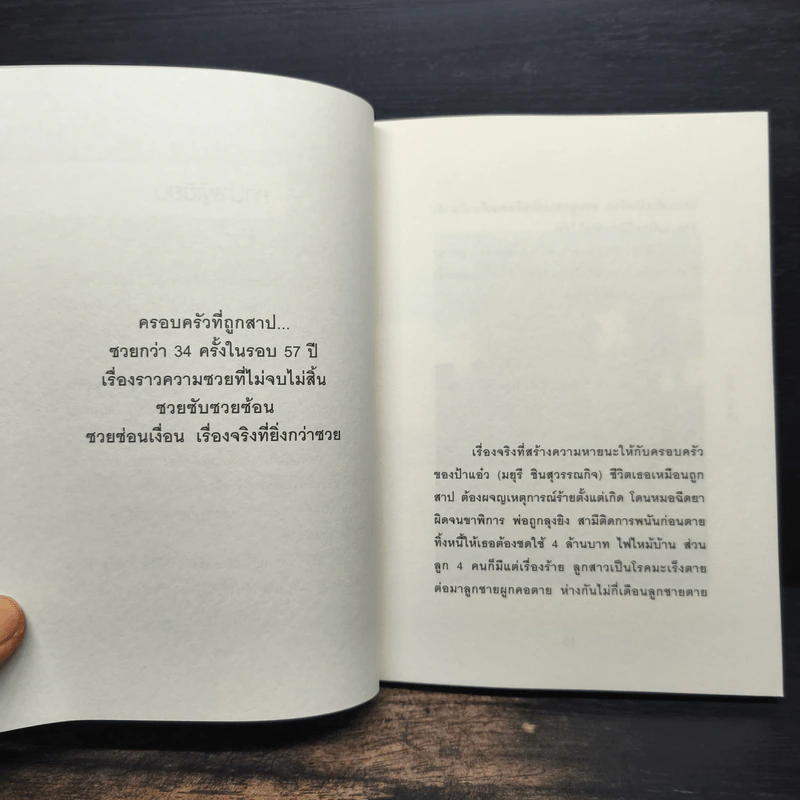 ครอบครัวที่ถูกสาป...
ซวยกว่า 34 ครั้งในรอบ 57 ปี
เรื่องราวความซวยที่ไม่จบไม่สิ้น
ซวยซับซวยซ้อน
ซวยซ่อนเงื่อน เรื่องจริงที่ยิ่งกว่าซวย
เรื่องจริงที่สร้างความหายนะให้กับครอบครัว
ของป้าแอ๋ว (มยุรี ชินสุวรรณกิจ) ชีวิตเธอเหมือนถูก
สาป ต้องผจญเหตุการณ์ร้ายตั้งแต่เกิด โดนหมอฉีดยา
ผิดจนขาพิการ พ่อถูกลุงยิง สามีติดการพนันก่อนตาย
ทิ้งหนี้ให้เธอต้องชดใช้ 4 ล้านบาท ไฟไหม้บ้าน ส่วน
ลูก 4 คนก็มีแต่เรื่องร้าย ลูกสาวเป็นโรคมะเร็งตาย
ต่อมาลูกชายผูกคอตาย ห่างกันไม่กี่เดือนลูกชายตาย